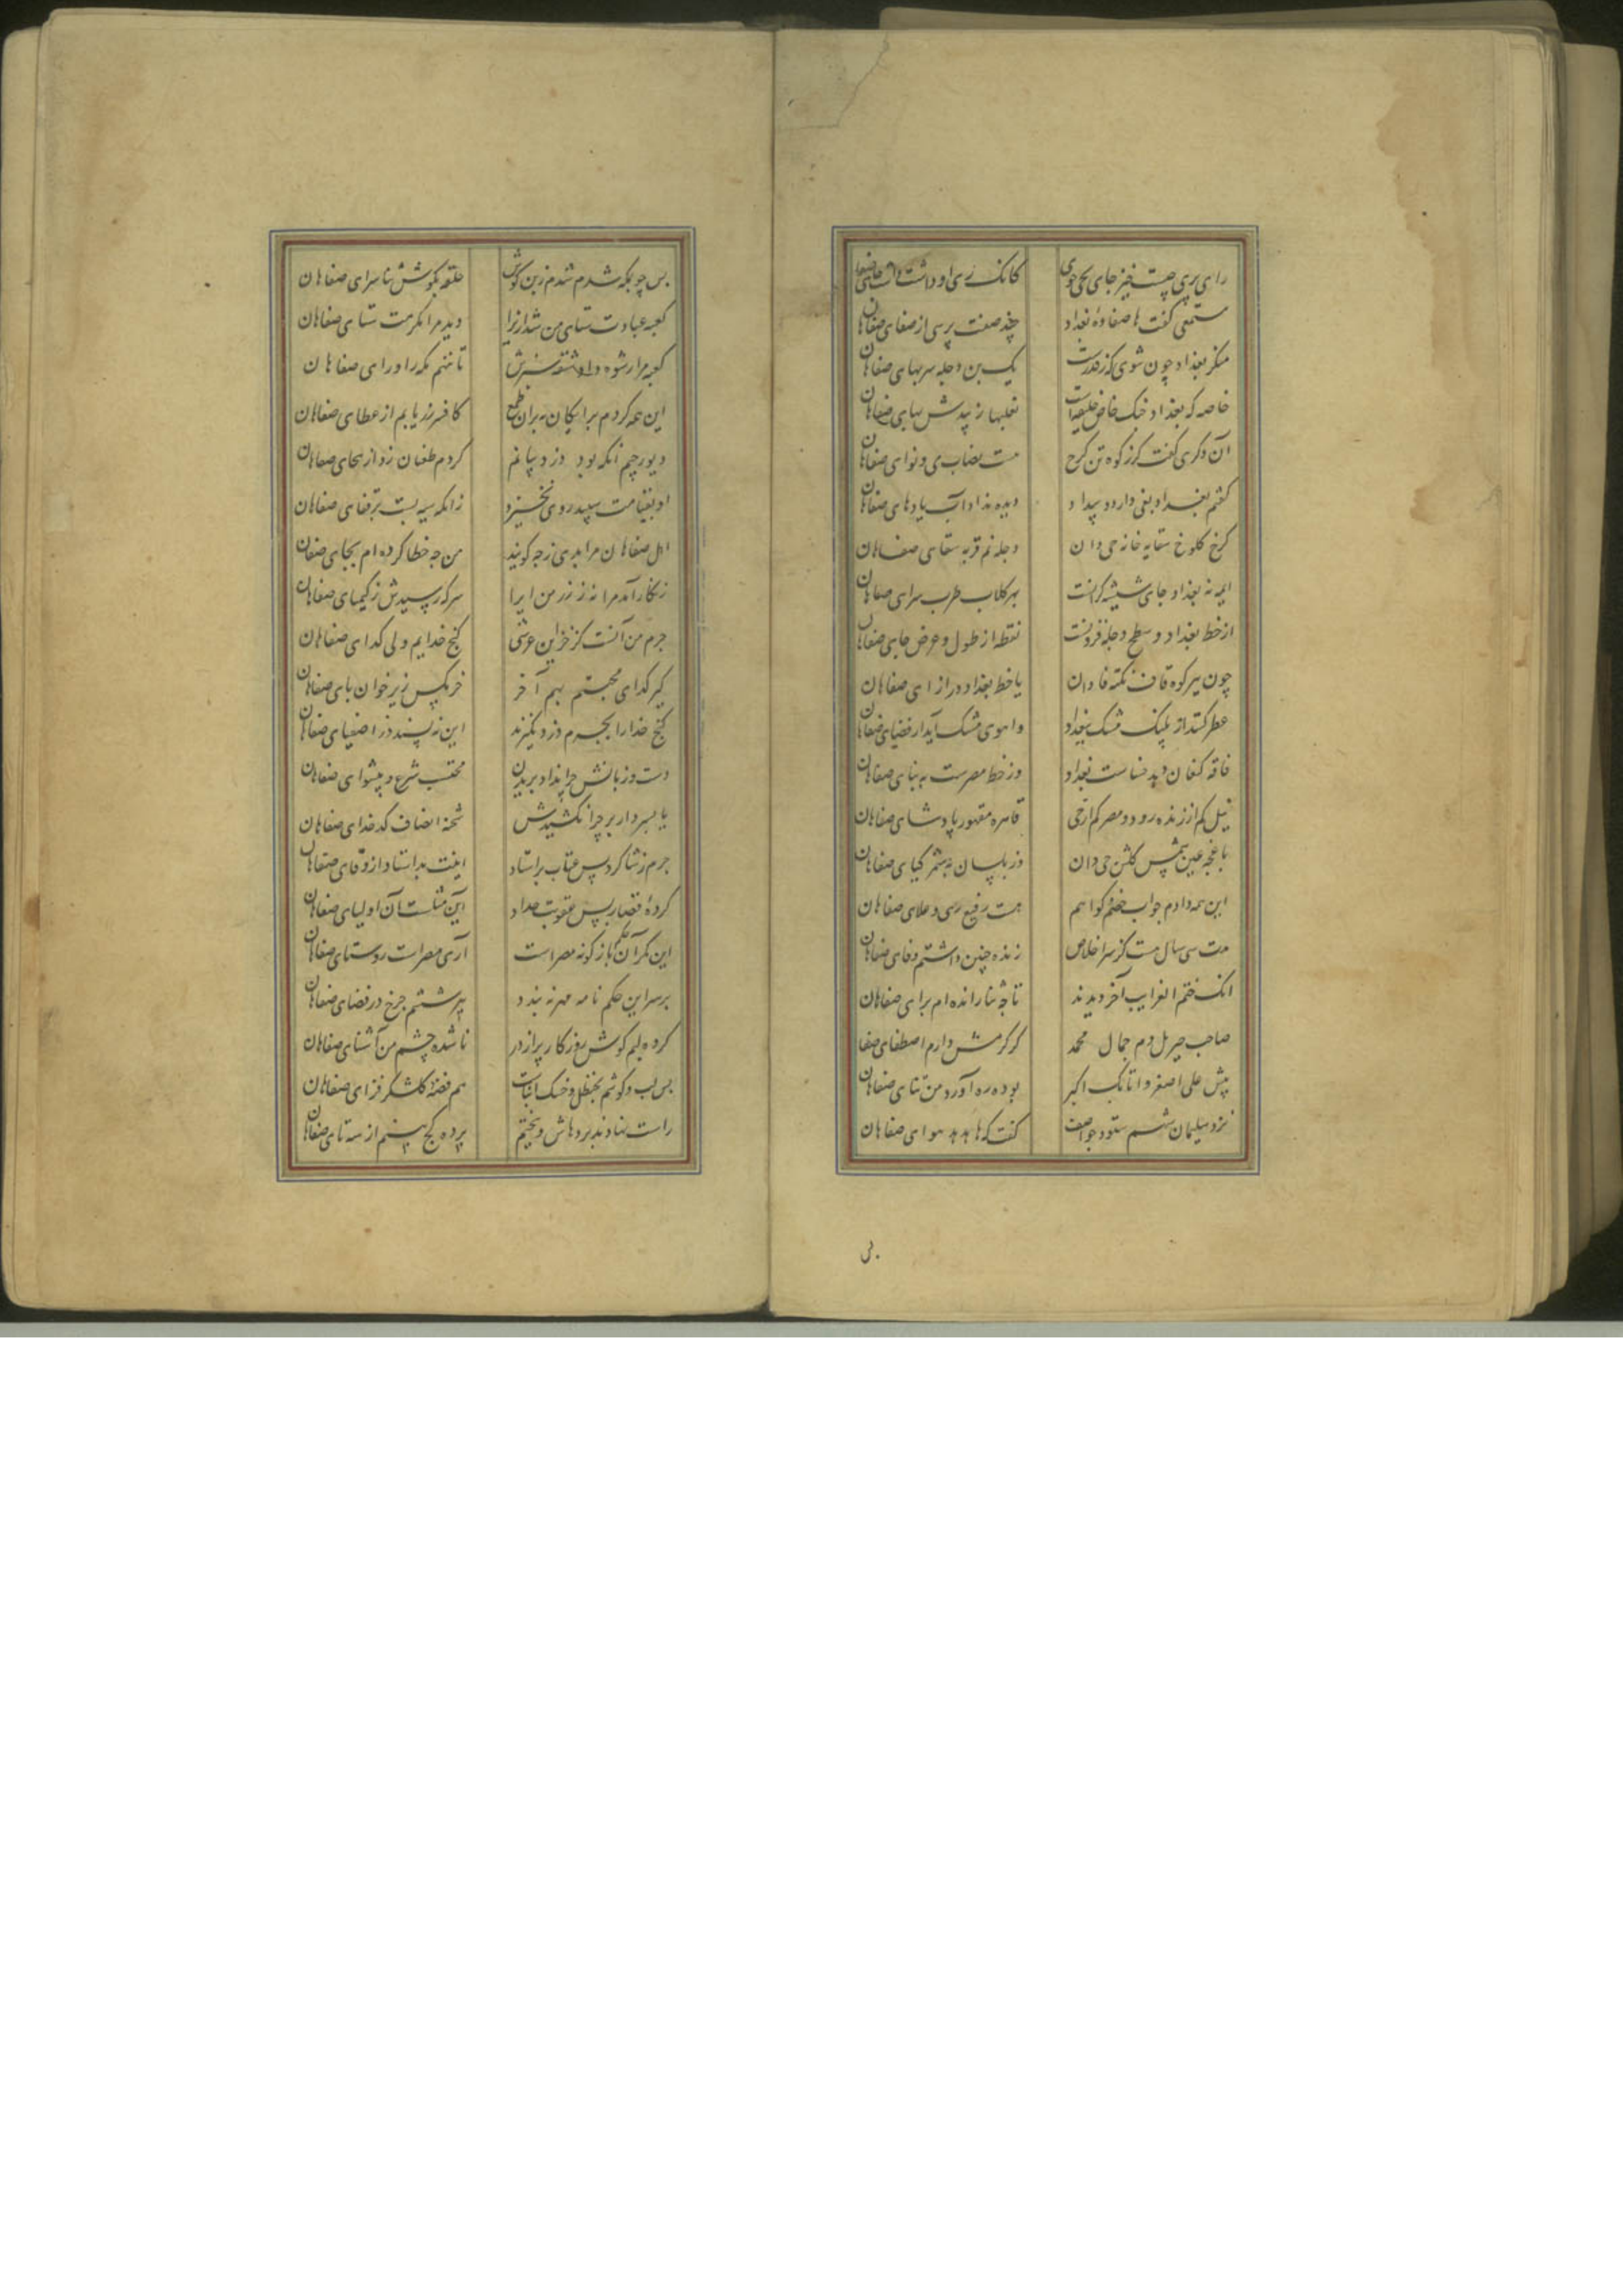 رای بری چیست خیز جای بجی جوی کانک ری او داشت داشت جای صفاهان
مستمعی گفت ها صفاوه بغداد چند صفت پرسی از صفای صفاهان
منکر بغداد چون شوی که ز قدرست ریک بن دجله سربهای صفاهان
خاصه که بغداد خنک خاص خلیفه است نعلبها زیبدش بهای صفاهان
آن دکری گفت کز زکوه تن کرخ هست نصاب ری و نوای صفاهان
گفتم بغداد بغی دارد و بیداد دیده نه داد آب یادهای صفاهان
کرخ کلوخ سقایه خانه جی دان دجله نم قربه سقای صفاهان
ایمه نه بغداد جای شیشه گرانست بهر گلاب طرب سرای صفاهان
از خط بغداد و سطح دجله فزونست نقطه از طول و عرض جای صفاهان
چون بیر کوه قاف نکته فا دان یا خط بغداد در ازای صفاهان
عطر کنند از پلنک مشک ببغداد و آهوی مشک آید از فضای صفاهان
فاقه کنعان دهد خساست بغداد وز خط مصرست به بنای صفاهان
نیل کم از زنده رود و مصر کم از جی قاهره مقهور پادشای صفاهان
باغچه عین شمس گلشن جی دان وز بلسان به شمر گیای صفاهان
این همه دادم جواب خصم گواهم هست رفیع ری و علای صفاهان
مدت سی سال هست کز سر اخلاص زنده چنین داشتم وفای صفاهان
انک ختم الغرایب آخر دیدند تا چه ثنا رانده ام برای صفاهان
صاحب جبریل دم جمال محمد کز کرمش دارم اصطفای صفا
پیش علی اصغر و اتابک اکبر بوده ره آورد من ثنای صفاهان
نزد سلیمان شهم ستود چو آصف گفت که ها هدهد هوای صفاهان
بر
بس چو بمکه شدم شدم ز بن گوش حلقه بگوش ثنا سرای صفاهان
کعبه عبادت ستای من شد ازیرا دید مرا مکرمت ستای صفاهان
کعبه مرا رشوه داد شقه سبزش تا ننهم مکه را ورای صفاهان
این همه کردم برایگان نه بران طمع کافسر زر یابم از عطای صفاهان
دیو رجیم آنکه بود دزد بیانم کر دم طغیان زد از هجای صفاهان
او بقیامت سپید روی نخیزد زانکه سیه بست بر قفای صفاهان
اهل صفاهان مرا بدی ز چه گویند من چه خطا کرده ام بجای صفاهان
زنگار آمد مرا نه زر ز من ایرا سرکه رسیدش ز کیمیای صفاهان
جرم من آنست کز خزاین عرشی گنج خدایم ولی گدای صفاهان
گیر گدای محبتم نیم آخر خرمگس زیر خوان بای صفاهان
گنج خدا را بجرم دزد نگیرند این نه پسندد ز اصفیای صفاهان
دست و زبانش چرا نداد بریدن محتسب شرع و پیشوای صفاهان
یا بسر دار بر چرا نکشیدش شحنه انصاف کدخدای صفاهان
جرم ز شاگرد پس عتاب بر استاد اینت بد استاد از دقای صفاهان
کرده قصار پس عقوبت حداد این مثلست آن اولیای صفاهان
این مگر آن حکم بازگونه مصر است آری مصر است روستای صفاهان
بر سر این حکم نامه مهر نه بندد پیر ششم چرخ در قضای صفاهان
کرده لبم گوش روزگار پر از در نا شده چشم من آشنای صفاهان
بس لب و گوشم بحنظل و خسک انباشت هم قصب گلشکر فزای صفاهان
راست نهادند پردهاش و بختم پرده کج بینم از سه تای صفاهان